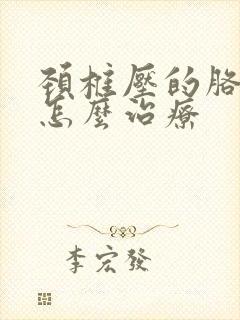 頸椎壓的胳
怎麼治療
李宏發